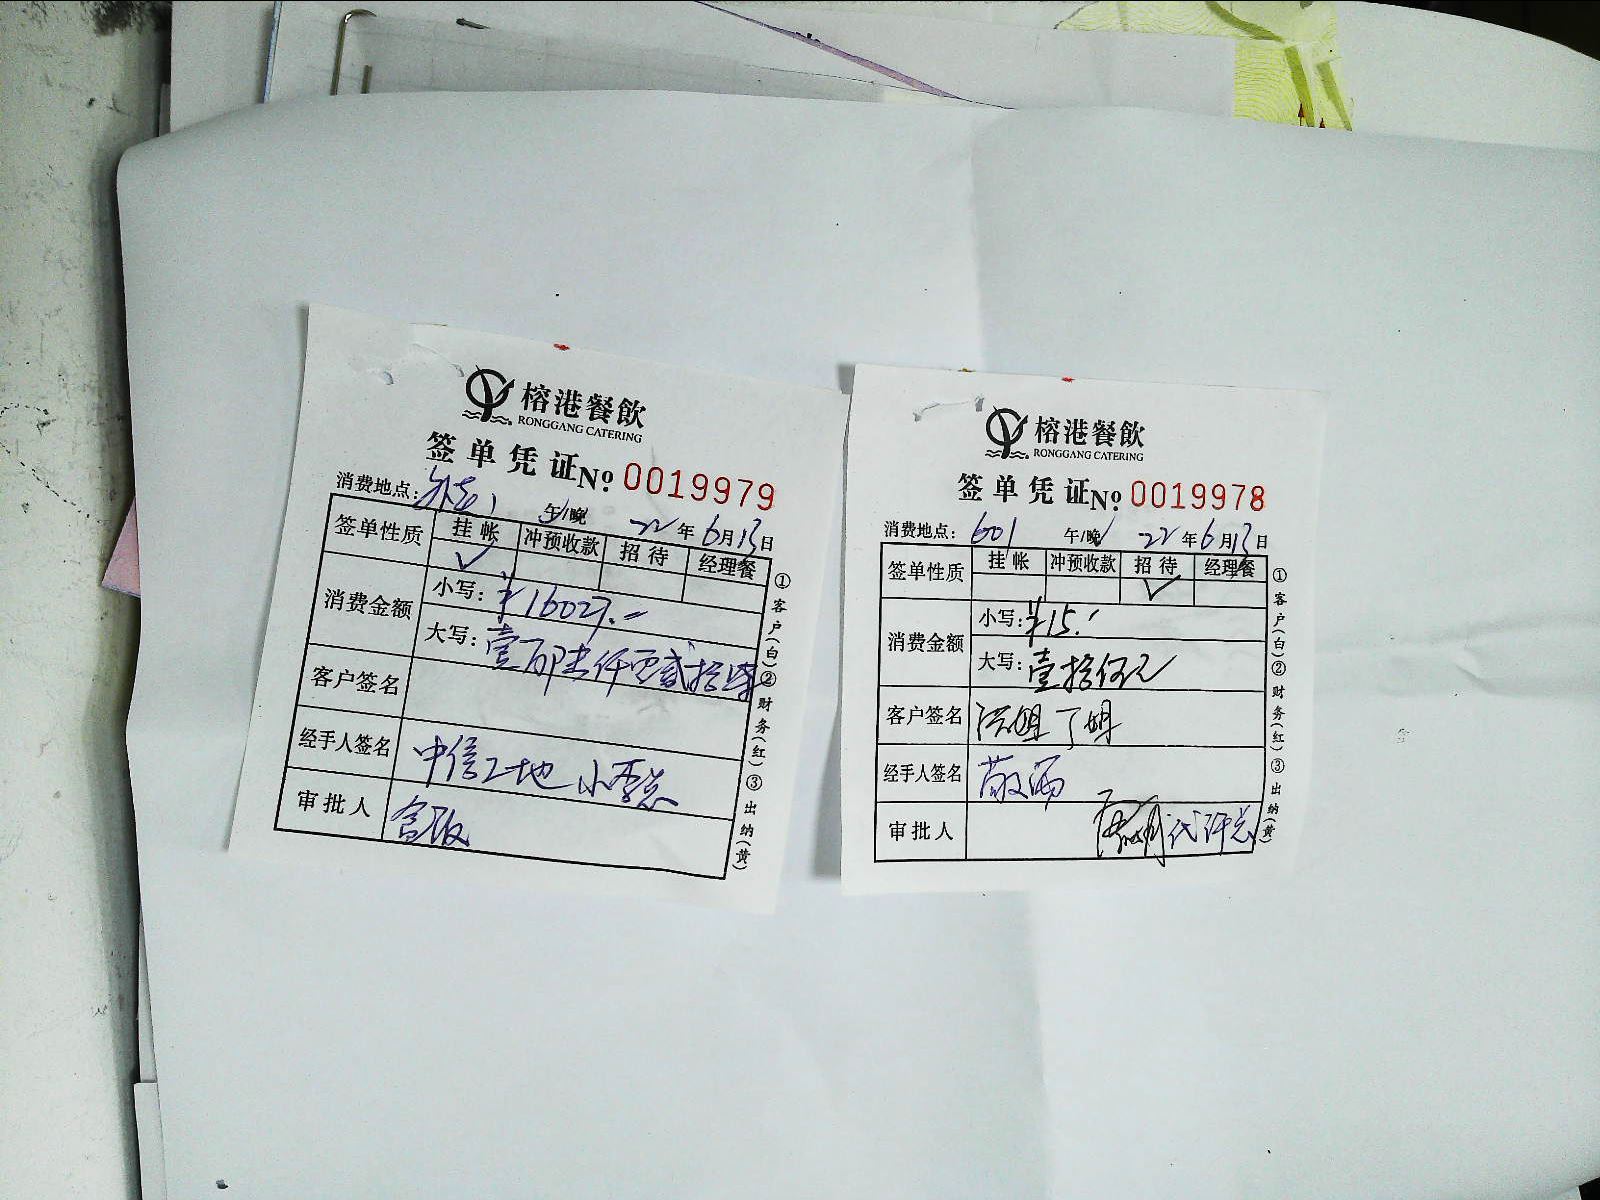 榕港餐飲
RONGGANG CATERING
签单凭证 No 0019979
消费地点: 午/晚 22年6月13日
签单性质 挂帐 冲预收款 招待 经理餐
✓
消费金额 小写: ¥16027.-
大写: 壹万陆仟零贰拾柒
客户签名
经手人签名 中信工地 小李总
审批人
①客户(白)②财务(红)③出纳(黄)
榕港餐飲
RONGGANG CATERING
签单凭证 No 0019978
消费地点: 601 午/晚 22年6月13日
签单性质 挂帐 冲预收款 招待 经理餐
✓
消费金额 小写: ¥15.-
大写: 壹拾伍元
客户签名 洪姐 丁姐
经手人签名
审批人 代许总
①客户(白)②财务(红)③出纳(黄)